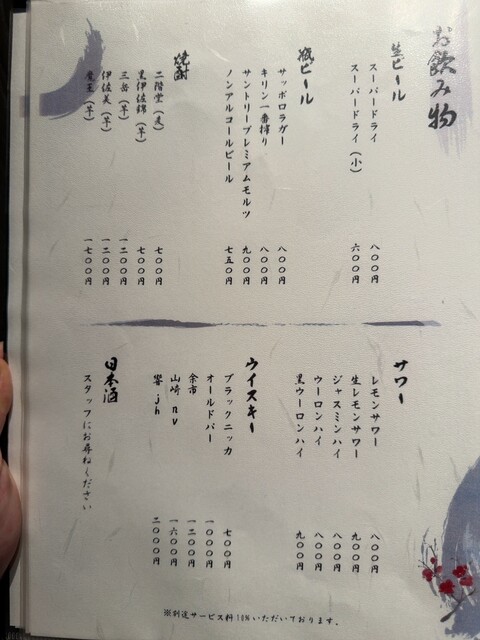 お飲み物
生ビール
スーパードライ 八〇〇円
スーパードライ（小） 六〇〇円
瓶ビール
サッポロラガー 八〇〇円
キリン一番搾り 八〇〇円
サントリープレミアムモルツ 九〇〇円
ノンアルコールビール 七五〇円
焼酎
二階堂（麦） 七〇〇円
黒伊佐錦（芋） 七〇〇円
三岳（芋） 一二〇〇円
伊佐美（芋） 一二〇〇円
魔王（芋） 一七〇〇円
サワー
レモンサワー 八〇〇円
生レモンサワー 九〇〇円
ジャスミンハイ 八〇〇円
ウーロンハイ 八〇〇円
黒ウーロンハイ 九〇〇円
ウイスキー
ブラックニッカ 七〇〇円
オールドパー 一〇〇〇円
余市 一二〇〇円
山崎 nv 一六〇〇円
響 jh 二〇〇〇円
日本酒
スタッフにお尋ねください
※別途サービス料10%いただいております。